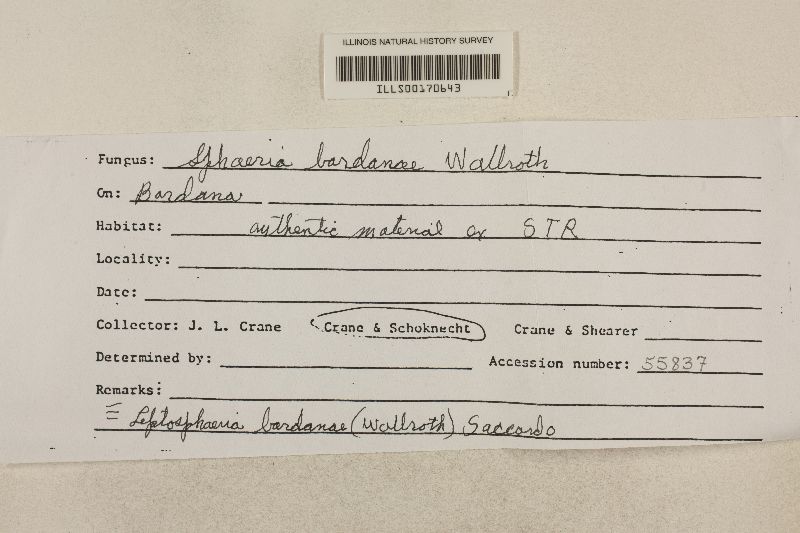 ILLINOIS NATURAL HISTORY SURVEY
ILLS00170643
Fungus: Sphaeria bardanae Wallroth
On: Bardana
Habitat: authentic material ex STR
Locality:
Date:
Collector: J. L. Crane Crane & Schoknecht Crane & Shearer
Determined by: Accession number: 55837
Remarks:
≡ Leptosphaeria bardanae (Wallroth) Saccardo